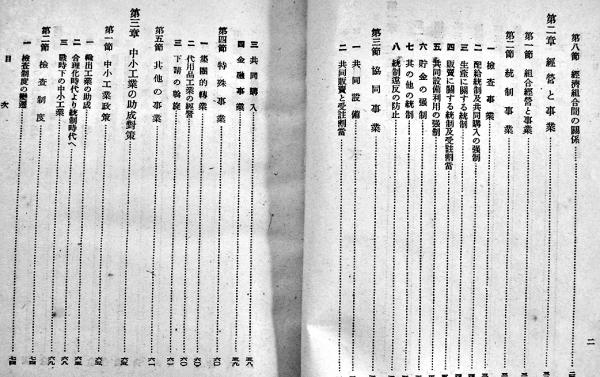 第八節 經濟組合間の關係
第二章 經營と事業
第一節 組合經營と事業
第二節 統制事業
一 檢査事業
二 配給統制及共同購入の强制
三 生産に關する統制
四 販賣に關する統制及受註割當
五 共同設備利用の强制
六 貯金の强制
七 其の他の統制
八 統制違反の防止
第三節 協同事業
一 共同設備
二 共同販賣と受註割當
二
三 共同購入 五八
四 金融事業 五九
第四節 特殊事業 六〇
一 集團的轉業 六〇
二 代用品工業の經營 六〇
三 下請の斡旋 六一
第五節 其他の事業 六一
第三章 中小工業の助成對策
第一節 中小工業政策
一 輸出工業の助成
二 合理化時代より統制時代へ 六八
三 戰時下の中小工業 六九
第二節 檢査制度 七四
一 檢査制度の變遷 七四
目次